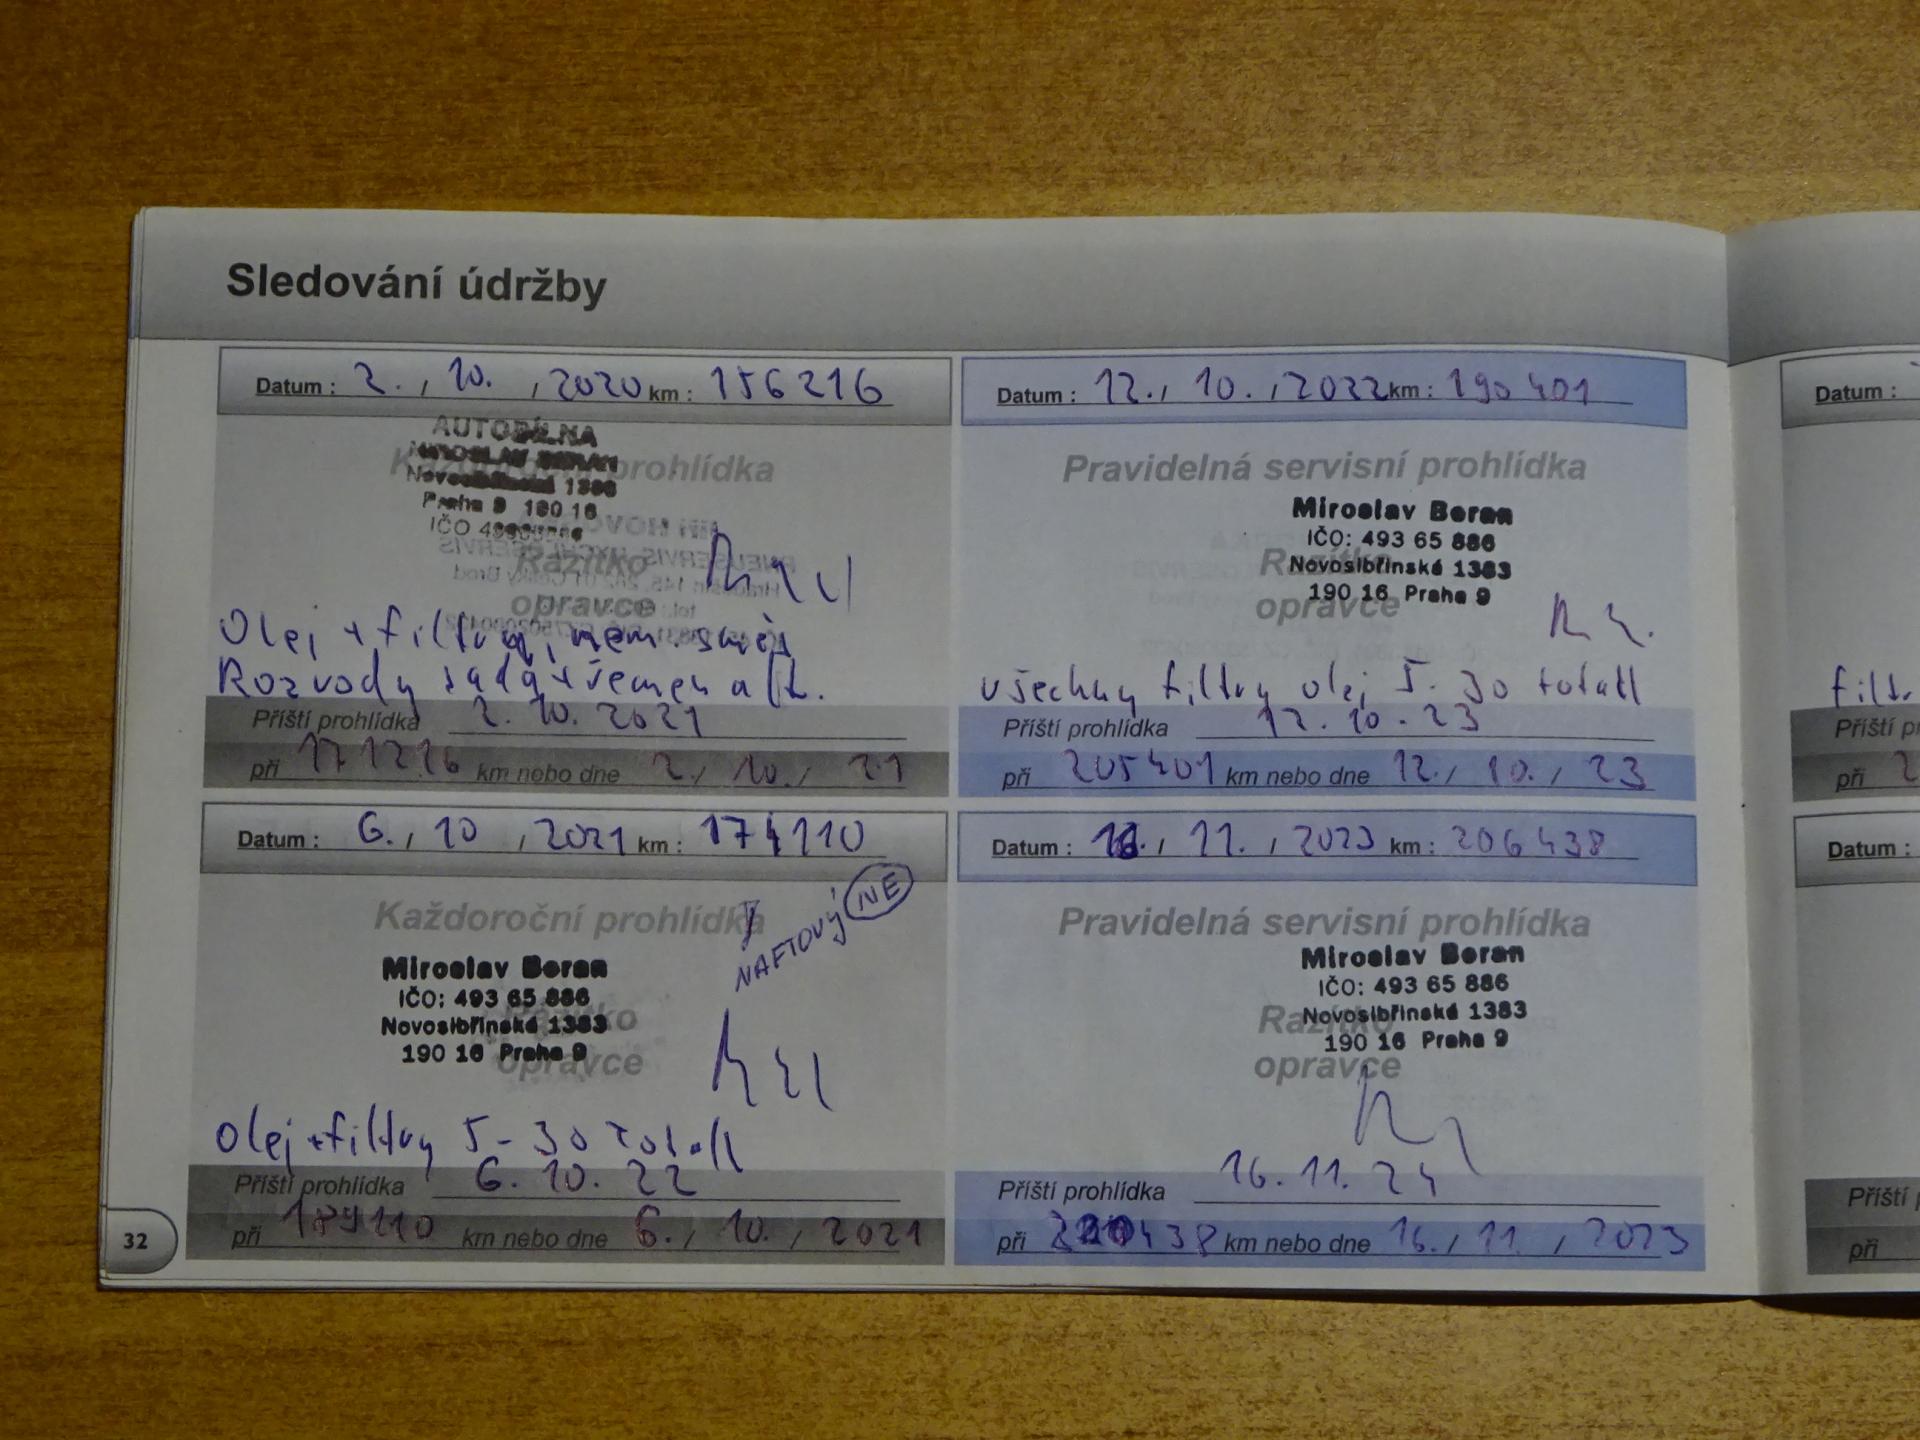 Sledování údržby
Datum : 2. , 10. , 2020 km : 156216
AUTODÍLNA
MIROSLAV BERAN
Každoroční prohlídka
Novosibřinská 1383
Praha 9 190 16
IČO
Razítko
opravce
Olej + filtry,
Rozvody sada + řemen alt.
Příští prohlídka 2. 10. 2021
při 171216 km nebo dne 2. , 10. , 21
Datum : 12. , 10. , 2022 km : 190401
Pravidelná servisní prohlídka
Miroslav Beran
IČO: 493 65 886
Razítko
Novosibřinská 1383
190 16 Praha 9
opravce
všechny filtry olej 5-30 totall
Příští prohlídka 12. 10. 23
při 205401 km nebo dne 12. , 10. , 23
Datum : 6. , 10 , 2021 km : 174110
Každoroční prohlídka
NAFTOVÝ NE
Miroslav Beran
IČO: 493 65 886
Razítko
Novosibřinská 1383
190 16 Praha 9
opravce
Olej + filtry 5-30 totall
Příští prohlídka 6. 10. 22
při 189110 km nebo dne 6. , 10. , 2021
Datum : 16. , 11. , 2023 km : 206438
Pravidelná servisní prohlídka
Miroslav Beran
IČO: 493 65 886
Razítko
Novosibřinská 1383
190 16 Praha 9
opravce
Příští prohlídka 16. 11. 24
při km nebo dne 16. , 11 , 2023
32
Datum :
filtr
Příští
při 2
Datum :
Příští
při